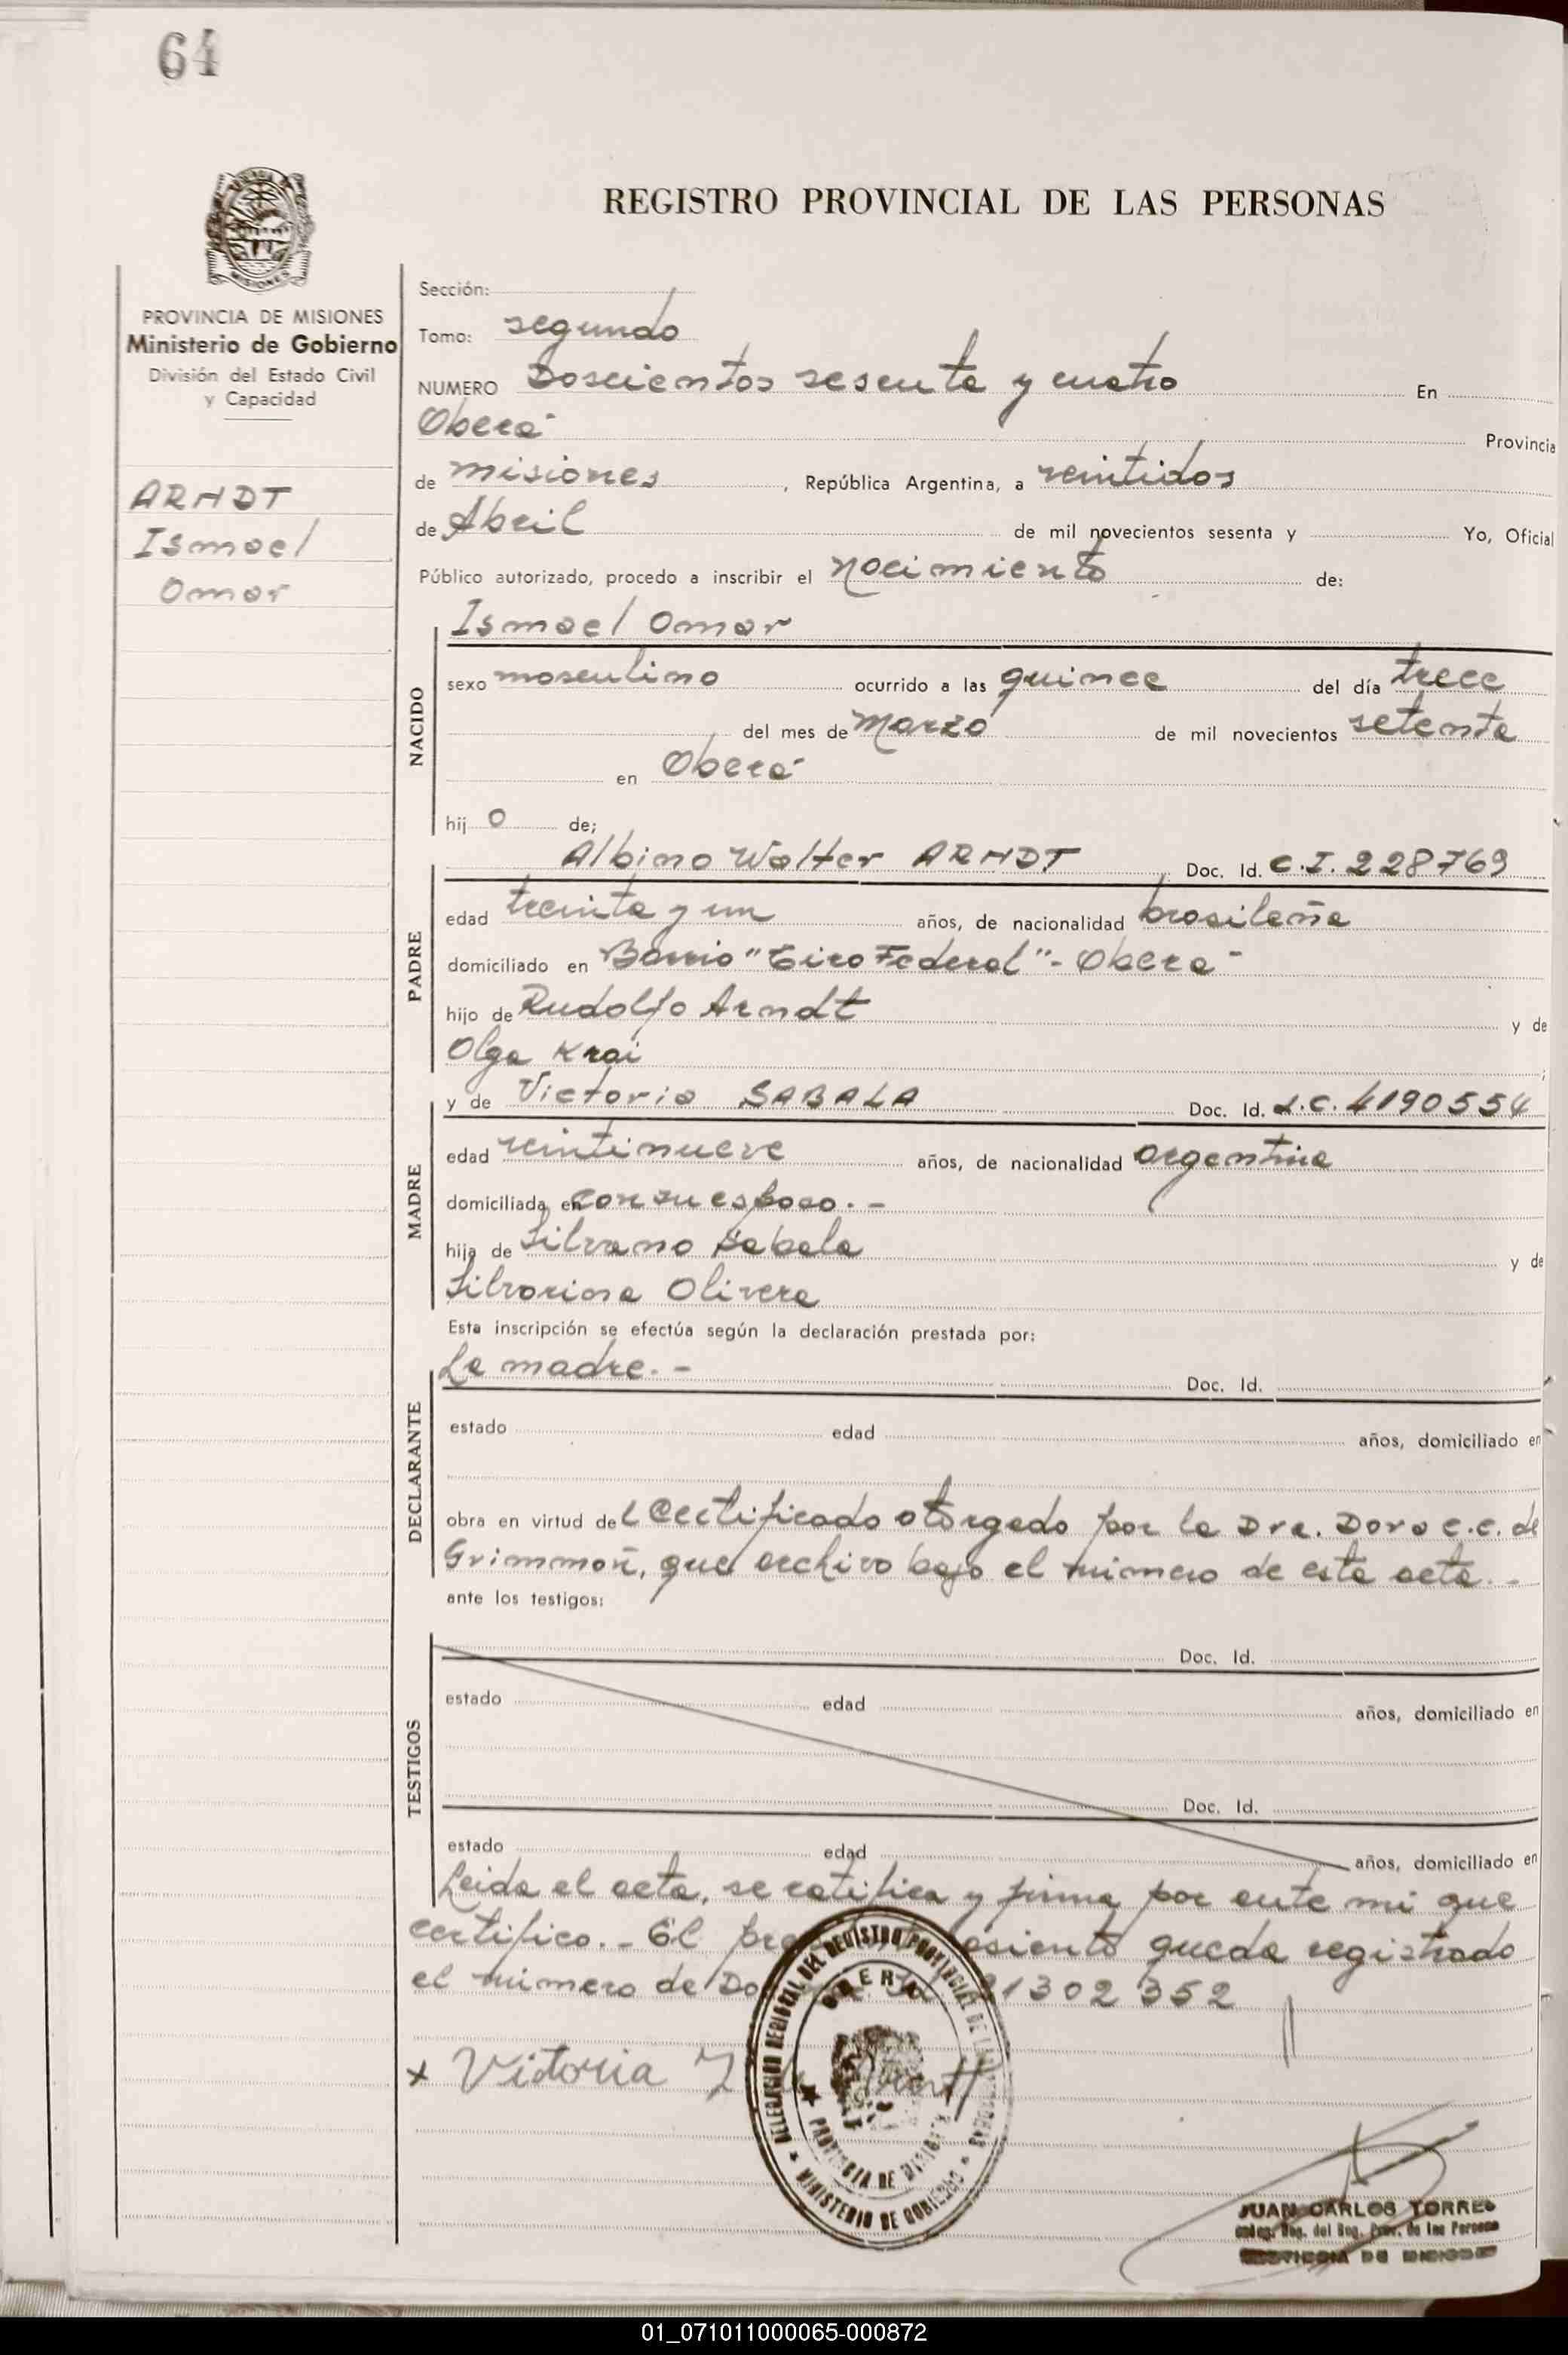 64
REGISTRO PROVINCIAL DE LAS PERSONAS
MISIONES
PROVINCIA DE MISIONES
Ministerio de Gobierno
División del Estado Civil
y Capacidad
ARNDT
Ismael
Omar
Sección:
Tomo: segundo
NUMERO Doscientos sesenta y cuatro En
Oberá Provincia
de misiones, República Argentina, a veintidos
de Abril de mil novecientos sesenta y Yo, Oficial
Público autorizado, procedo a inscribir el nacimiento de:
Ismael Omar
NACIDO
sexo masculino ocurrido a las quince del día trece
del mes de Marzo de mil novecientos setenta
en Oberá
hij o de;
Albino Walter ARNDT Doc. Id. C.I. 228769
PADRE
edad treinta y un años, de nacionalidad brasileña
domiciliado en Barrio "Tiro Federal"- Oberá-
hijo de Rudolfo Arndt y de
Olga Krai
y de Victoria SABALA Doc. Id. L.C. 4190554
MADRE
edad veintinueve años, de nacionalidad argentina
domiciliada en con su esposo.-
hija de Silvano Sabala y de
Silvorina Olivera
Esta inscripción se efectúa según la declaración prestada por:
La madre.- Doc. Id.
DECLARANTE
estado edad años, domiciliado en
obra en virtud del Certificado otorgado por la Dra. Dora C.C. de
Grimmon, que archivo bajo el número de esta acta.-
ante los testigos:
TESTIGOS
Doc. Id.
estado edad años, domiciliado en
Doc. Id.
estado edad años, domiciliado en
Leida el acta, se ratifica y firma por ante mi que
certifico.- El asiento queda registrado
el número de 21302352
x Victoria
DELEGACION REGIONAL DEL REGISTRO PROVINCIAL DE LAS PERSONAS
OBERA
PROVINCIA DE MISIONES
MINISTERIO DE GOBIERNO
JUAN CARLOS TORRES
del Reg. Prov. de las Personas
PROVINCIA DE MISIONES
01_071011000065-000872